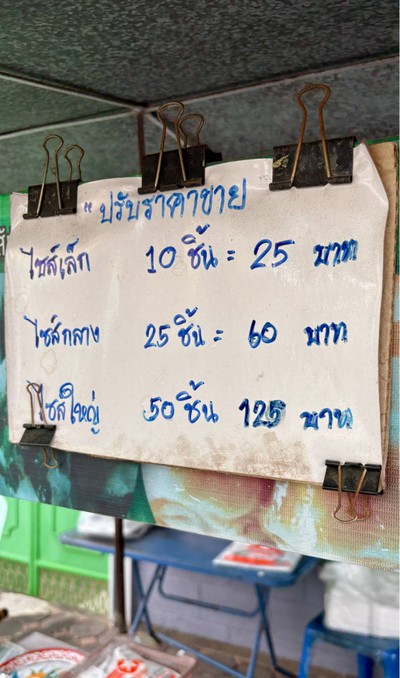 " ปรับราคาขาย
ไซส์เล็ก 10 ชิ้น = 25 บาท
ไซส์กลาง 25 ชิ้น = 60 บาท
ไซส์ใหญ่ 50 ชิ้น 125 บาท